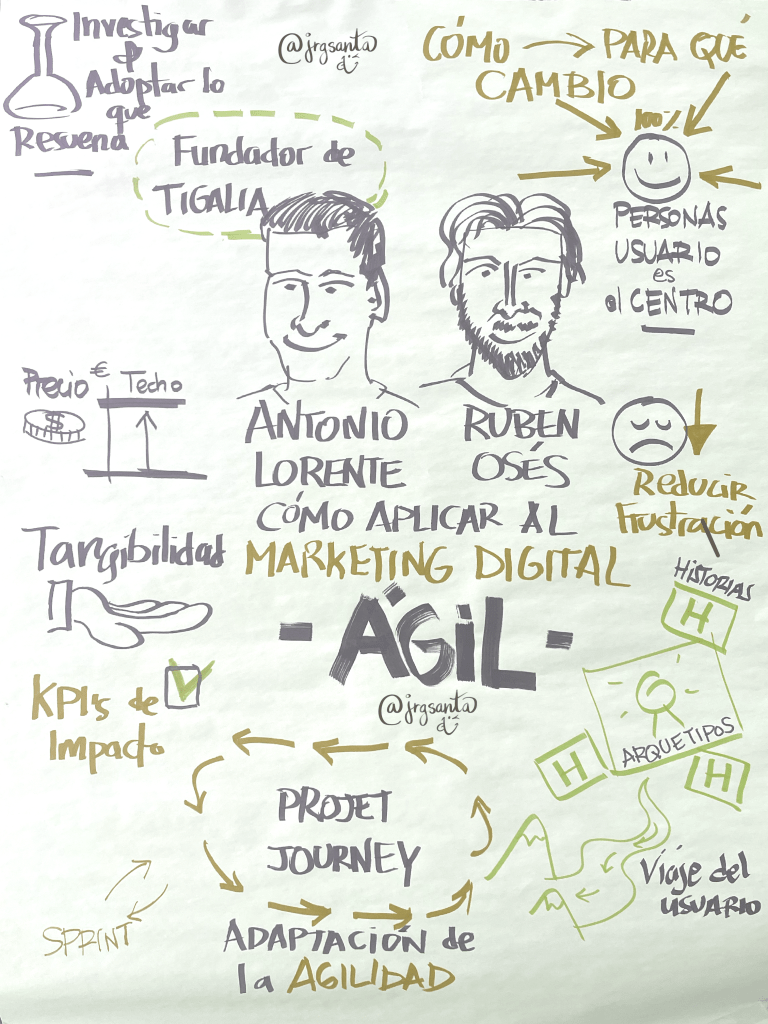 Investigar
&
Adoptar lo
que
Resuena
@jrgsanta
CÓMO → PARA QUÉ
CAMBIO
100%
PERSONAS
USUARIO
es
el CENTRO
Fundador de
TIGALIA
Precio €
$
Techo
ANTONIO
LORENTE
RUBEN
OSÉS
CÓMO APLICAR AL
MARKETING DIGITAL
- ÁGIL -
@jrgsanta
Reducir
Frustración
Tangibilidad
KPI's de
Impacto
HISTORIAS
H
ARQUETIPOS
H
H
Viaje del
USUARIO
PROJET
JOURNEY
SPRINT
ADAPTACIÓN de
la AGILIDAD